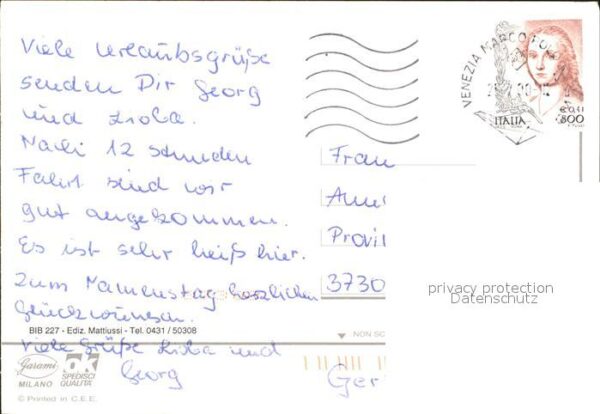 Viele Urlaubsgrüße
senden Dir Georg
und Liola.
Nach 12 Stunden
Fahrt sind wir
gut angekommen.
Es ist sehr heiß hier.
Zum Namenstag herzlichen
Glückwunsch.
Viele Grüße und
Georg
VENEZIA MARCO POLO
ITALIA
€ 0,41
800
Frau
Anni
Provi
3730
Ger
privacy protection
Datenschutz
BIB 227 - Ediz. Mattiussi - Tel. 0431 / 50308
NON SC
Garami
MILANO
ok
SPEDISCI
QUALITA'
© Printed in C.E.E.